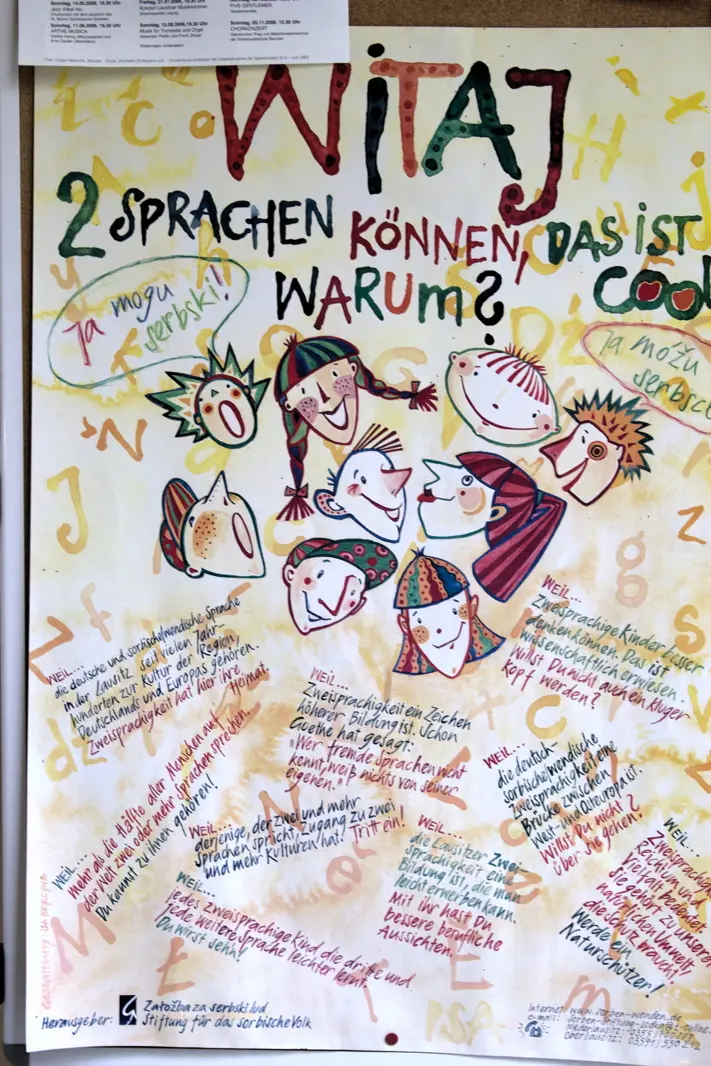 Sonntag, 14.05.2006, 19.30 Uhr
Sonntag, 11.06.2006, 19.30 Uhr
ARTHE MUSICA
Freitag, 21.07.2006, 19.30 Uhr
Sonntag, 13.08.2006, 19.30 Uhr
Musik für Trompete und Orgel
FIVE GENTLEMEN
Sonntag, 05.11.2006, 19.30 Uhr
CHORKONZERT
WITAJ
2 SPRACHEN KÖNNEN, DAS IST COOL
WARUM?
Ja mogu
serbski!
Ja móžu
serbsce
WEIL...
die deutsche und sorbische/wendische Sprache
in der Lausitz seit vielen Jahr-
hunderten zur Kultur der Region,
Deutschlands und Europas gehören.
Zweisprachigkeit hat hier ihre
Heimat.
WEIL...
Zweisprachige Kinder besser
denken können. Das ist
wissenschaftlich erwiesen.
Willst Du nicht auch ein kluger
Kopf werden?
WEIL...
Zweisprachigkeit ein Zeichen
höherer Bildung ist. Schon
Goethe hat gesagt:
"Wer fremde Sprachen nicht
kennt, weiß nichts von seiner
eigenen."
WEIL...
mehr als die Hälfte aller Menschen auf
der Welt zwei oder mehr Sprachen sprechen.
Du kannst zu ihnen gehören!
WEIL...
die deutsch-
sorbische/wendische
Zweisprachigkeit eine
Brücke zwischen
West- und Osteuropa ist.
Willst Du nicht
über sie gehen?
WEIL...
derjenige, der zwei und mehr
Sprachen spricht, Zugang zu zwei
und mehr Kulturen hat. Tritt ein!
WEIL...
die Lausitzer Zwei-
sprachigkeit eine
Bildung ist, die man
leicht erwerben kann.
Mit ihr hast Du
bessere berufliche
Aussichten.
WEIL...
Zweisprachig
Reichtum und
Vielfalt bedeutet
Sie gehört zu unserer
natürlichen Umwelt,
die Schutz braucht.
Werde ein
Naturschützer!
WEIL...
jedes zweisprachige Kind die dritte und
jede weitere Sprache leichter lernt.
Du wirst sehn!
Herausgeber:
Załožba za serbski lud
Stiftung für das sorbische Volk
Internet: www.sorben-wenden.de
e-mail:
Niederlausitz:
Oberlausitz: